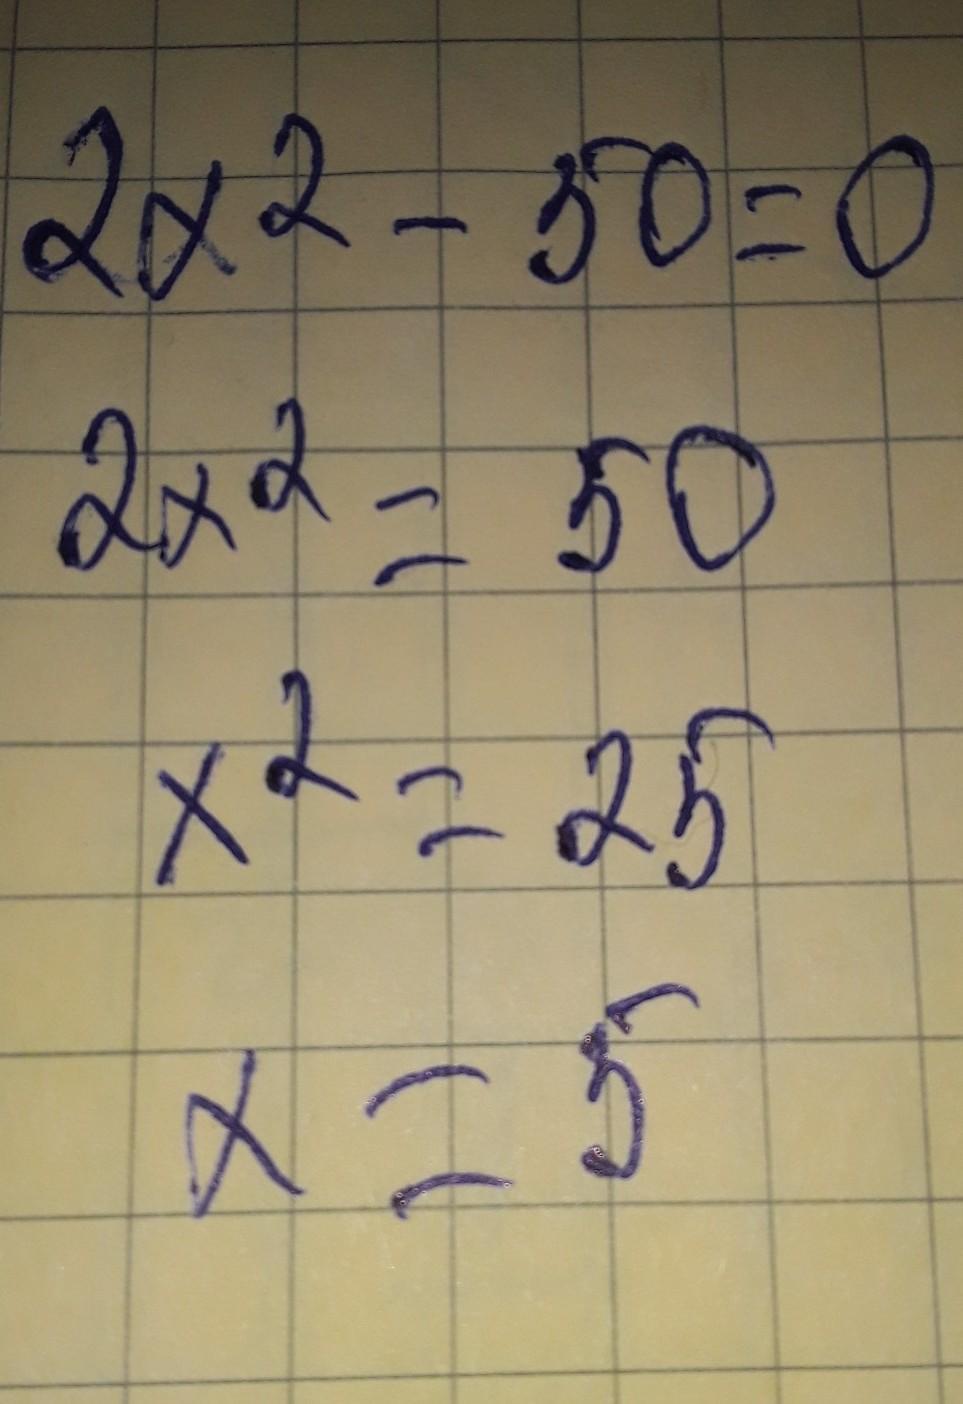 2x² - 50 = 0
2x² = 50
x² = 25
x = 5